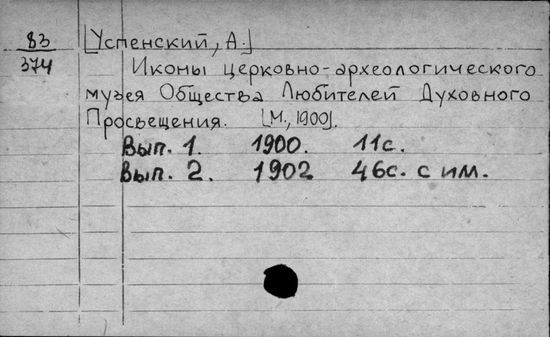 83
374
[Успенский, А.]
Иконы церковно-археологического
музея Общества Любителей Духовного
Просвещения. [М., 1900].
Вып. 1. 1900. 11с.
Вып. 2. 1902 46с. с им.